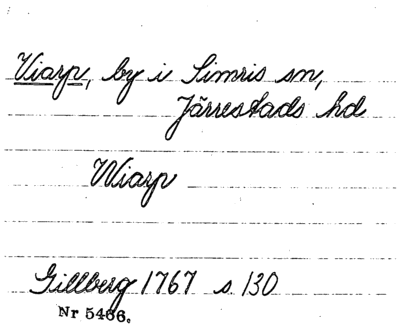 Viarp, by i Simris sn,
Järrestads hd
Wiarp
Gillberg 1767 s 130
Nr 5466.